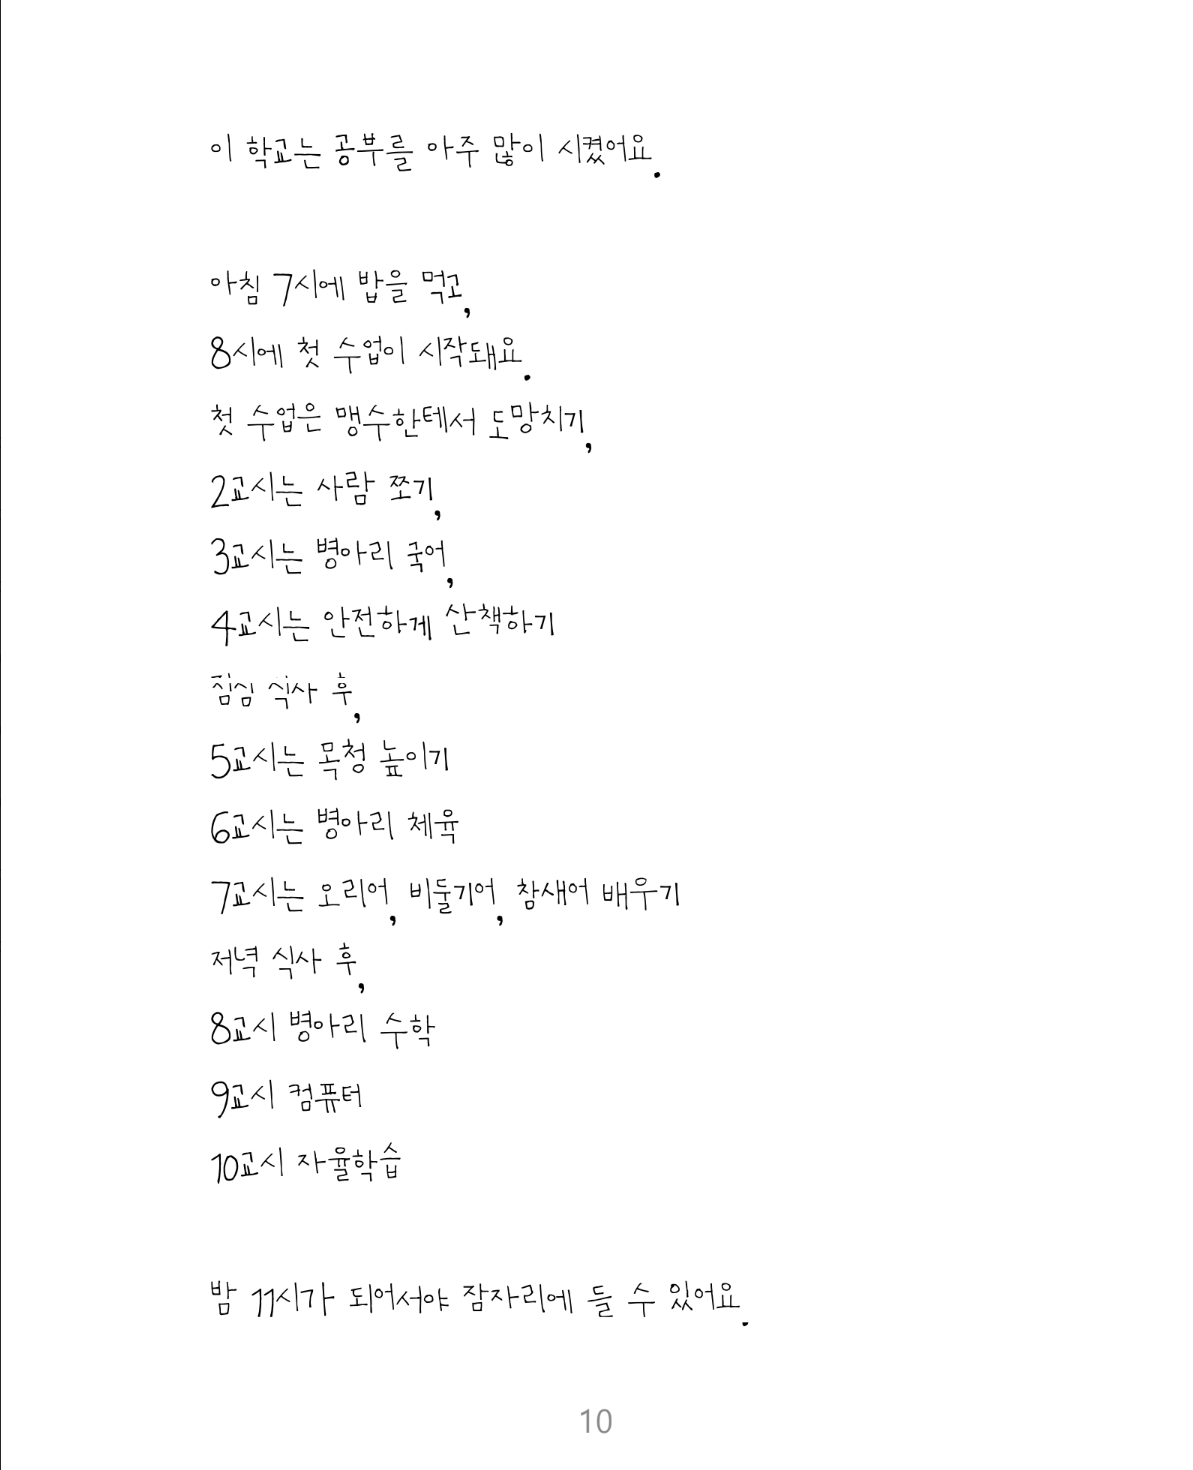 이 학교는 공부를 아주 많이 시켰어요.
아침 7시에 밥을 먹고,
8시에 첫 수업이 시작돼요.
첫 수업은 맹수한테서 도망치기,
2교시는 사람 쪼기,
3교시는 병아리 국어,
4교시는 안전하게 산책하기
점심 식사 후,
5교시는 목청 높이기
6교시는 병아리 체육
7교시는 오리어, 비둘기어, 참새어 배우기
저녁 식사 후,
8교시 병아리 수학
9교시 컴퓨터
10교시 자율학습
밤 11시가 되어서야 잠자리에 들 수 있어요.
10